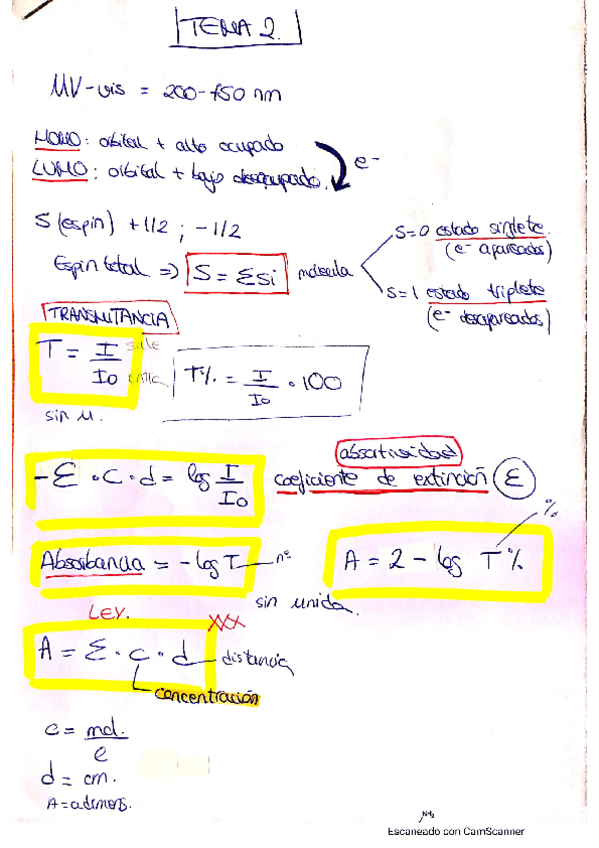 TEMA 2.
UV-vis = 200-750 nm
HOMO: orbital + alto ocupado
LUMO: orbital + bajo desocupado.
e-
S (espin) +1/2 ; -1/2
Espin total => S = Σsi molécula
S=0 estado singlete.
(e- apareados)
S=1 estado triplete
(e- desapareados)
TRANSMITANCIA
T = I / Io
sale
entra
T% = I / Io · 100
sin u.
absortividad
-ε · c · d = log I / Io
coeficiente de extinción ε
Absorbancia = -log T — nº
sin unida.
A = 2 - log T%
%
LEY.
XXX
A = ε · c · d — distancia
concentración
c = mol. / l
d = cm.
A = adimens.
Escaneado con CamScanner